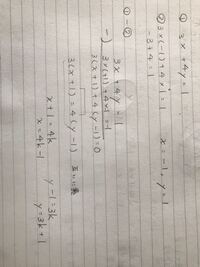 ① 3x+4y=1
② 3×(-1)+4×1=1
-3+4=1
x=-1, y=1
①-②
3x+4y=1
-) 3×(-1)+4×1=1
3(x+1)+4(y-1)=0
3(x+1)=4(y-1) 互いに素
x+1=4k
x=4k-1
y-1=3k
y=3k+1